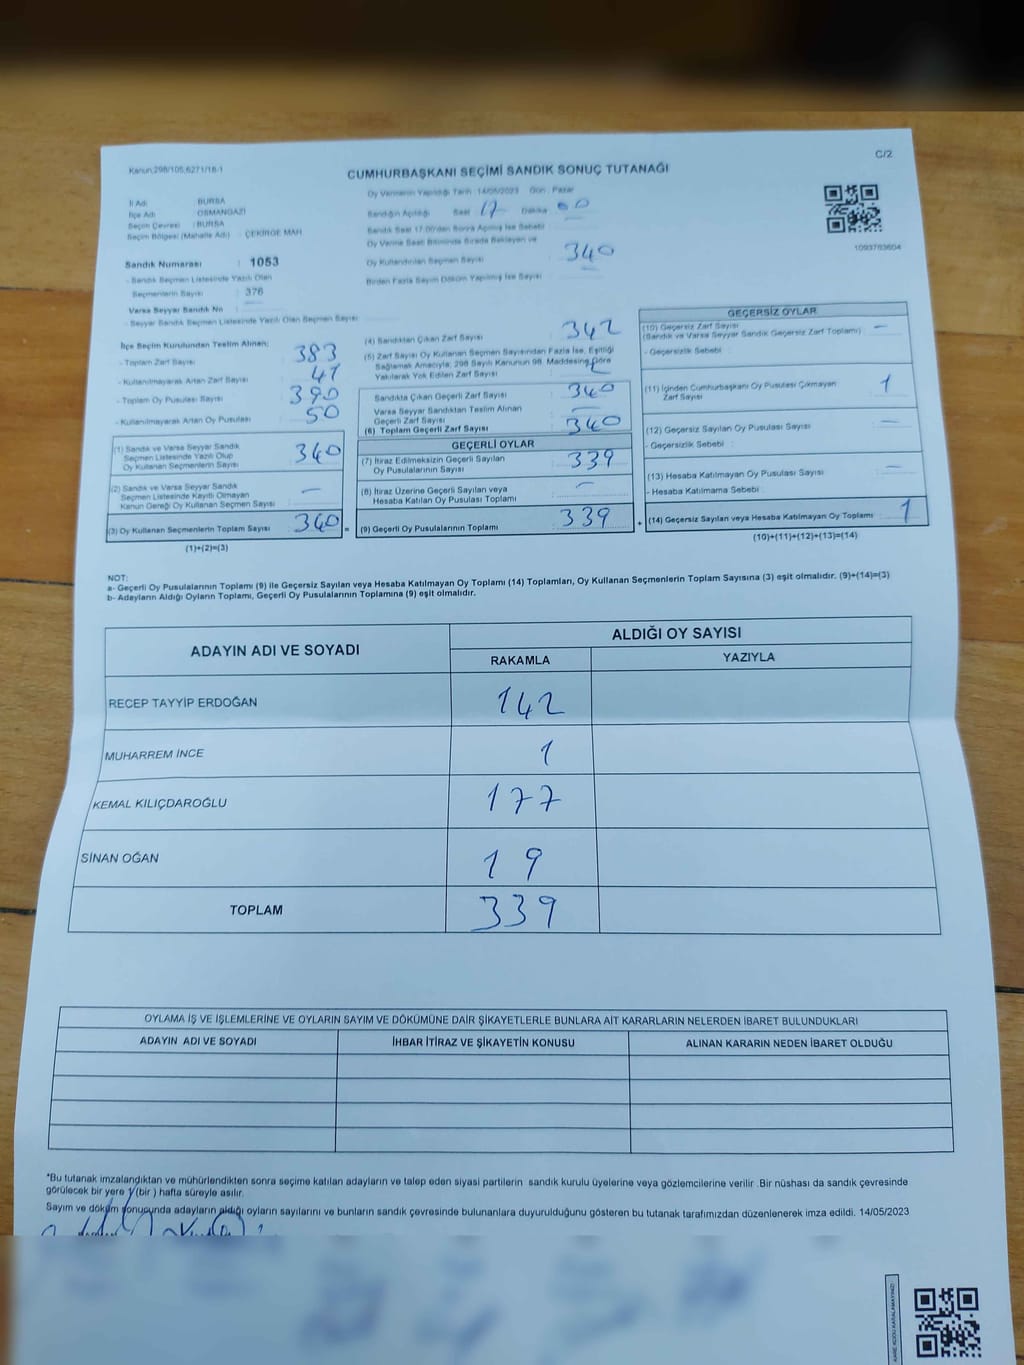 Kanun;298/105,6271/18-1
C/2
CUMHURBAŞKANI SEÇİMİ SANDIK SONUÇ TUTANAĞI
İl Adı : BURSA
İlçe Adı : OSMANGAZİ
Seçim Çevresi : BURSA
Seçim Bölgesi (Mahalle Adı) : ÇEKİRGE MAH
Sandık Numarası : 1053
- Sandık Seçmen Listesinde Yazılı Olan
Seçmenlerin Sayısı : 376
Varsa Seyyar Sandık No
- Seyyar Sandık Seçmen Listesinde Yazılı Olan Seçmen Sayısı
Oy Vermenin Yapıldığı Tarih : 14/05/2023 Gün : Pazar
Sandığın Açıldığı Saat 17 Dakika 00
Sandık Saat 17.00'den Sonra Açılmış İse Sebebi
Oy Verme Saati Bitiminde Sırada Bekleyen ve
Oy Kullandırılan Seçmen Sayısı 340
Birden Fazla Sayım Döküm Yapılmış İse Sayısı
1093783604
İlçe Seçim Kurulundan Teslim Alınan;
- Toplam Zarf Sayısı 383
- Kullanılmayarak Artan Zarf Sayısı 41
- Toplam Oy Pusulası Sayısı 390
- Kullanılmayarak Artan Oy Pusulası 50
(1) Sandık ve Varsa Seyyar Sandık
Seçmen Listesinde Yazılı Olup
Oy Kullanan Seçmenlerin Sayısı 340
(2) Sandık ve Varsa Seyyar Sandık
Seçmen Listesinde Kayıtlı Olmayan
Kanun Gereği Oy Kullanan Seçmen Sayısı —
(3) Oy Kullanan Seçmenlerin Toplam Sayısı 340 =
(1)+(2)=(3)
(4) Sandıktan Çıkan Zarf Sayısı 342
(5) Zarf Sayısı Oy Kullanan Seçmen Sayısından Fazla İse, Eşitliği
Sağlamak Amacıyla, 298 Sayılı Kanunun 98. Maddesine Göre
Yakılarak Yok Edilen Zarf Sayısı 2
Sandıkta Çıkan Geçerli Zarf Sayısı 340
Varsa Seyyar Sandıktan Teslim Alınan
Geçerli Zarf Sayısı —
(6) Toplam Geçerli Zarf Sayısı 340
GEÇERLİ OYLAR
(7) İtiraz Edilmeksizin Geçerli Sayılan
Oy Pusulalarının Sayısı 339
(8) İtiraz Üzerine Geçerli Sayılan veya
Hesaba Katılan Oy Pusulası Toplamı —
(9) Geçerli Oy Pusulalarının Toplamı 339 +
GEÇERSİZ OYLAR
(10) Geçersiz Zarf Sayısı —
(Sandık ve Varsa Seyyar Sandık Geçersiz Zarf Toplamı)
- Geçersizlik Sebebi :
(11) İçinden Cumhurbaşkanı Oy Pusulası Çıkmayan
Zarf Sayısı 1
(12) Geçersiz Sayılan Oy Pusulası Sayısı —
- Geçersizlik Sebebi :
(13) Hesaba Katılmayan Oy Pusulası Sayısı —
- Hesaba Katılmama Sebebi
(14) Geçersiz Sayılan veya Hesaba Katılmayan Oy Toplamı 1
(10)+(11)+(12)+(13)=(14)
NOT:
a- Geçerli Oy Pusulalarının Toplamı (9) ile Geçersiz Sayılan veya Hesaba Katılmayan Oy Toplamı (14) Toplamları, Oy Kullanan Seçmenlerin Toplam Sayısına (3) eşit olmalıdır. (9)+(14)=(3)
b- Adayların Aldığı Oyların Toplamı, Geçerli Oy Pusulalarının Toplamına (9) eşit olmalıdır.
ADAYIN ADI VE SOYADI
ALDIĞI OY SAYISI
RAKAMLA YAZIYLA
RECEP TAYYİP ERDOĞAN 142
MUHARREM İNCE 1
KEMAL KILIÇDAROĞLU 177
SİNAN OĞAN 19
TOPLAM 339
OYLAMA İŞ VE İŞLEMLERİNE VE OYLARIN SAYIM VE DÖKÜMÜNE DAİR ŞİKAYETLERLE BUNLARA AİT KARARLARIN NELERDEN İBARET BULUNDUKLARI
ADAYIN ADI VE SOYADI İHBAR İTİRAZ VE ŞİKAYETİN KONUSU ALINAN KARARIN NEDEN İBARET OLDUĞU
*Bu tutanak imzalandıktan ve mühürlendikten sonra seçime katılan adayların ve talep eden siyasi partilerin sandık kurulu üyelerine veya gözlemcilerine verilir .Bir nüshası da sandık çevresinde
görülecek bir yere 1 (bir ) hafta süreyle asılır.
Sayım ve döküm sonucunda adayların aldığı oyların sayılarını ve bunların sandık çevresinde bulunanlara duyurulduğunu gösteren bu tutanak tarafımızdan düzenlenerek imza edildi. 14/05/2023